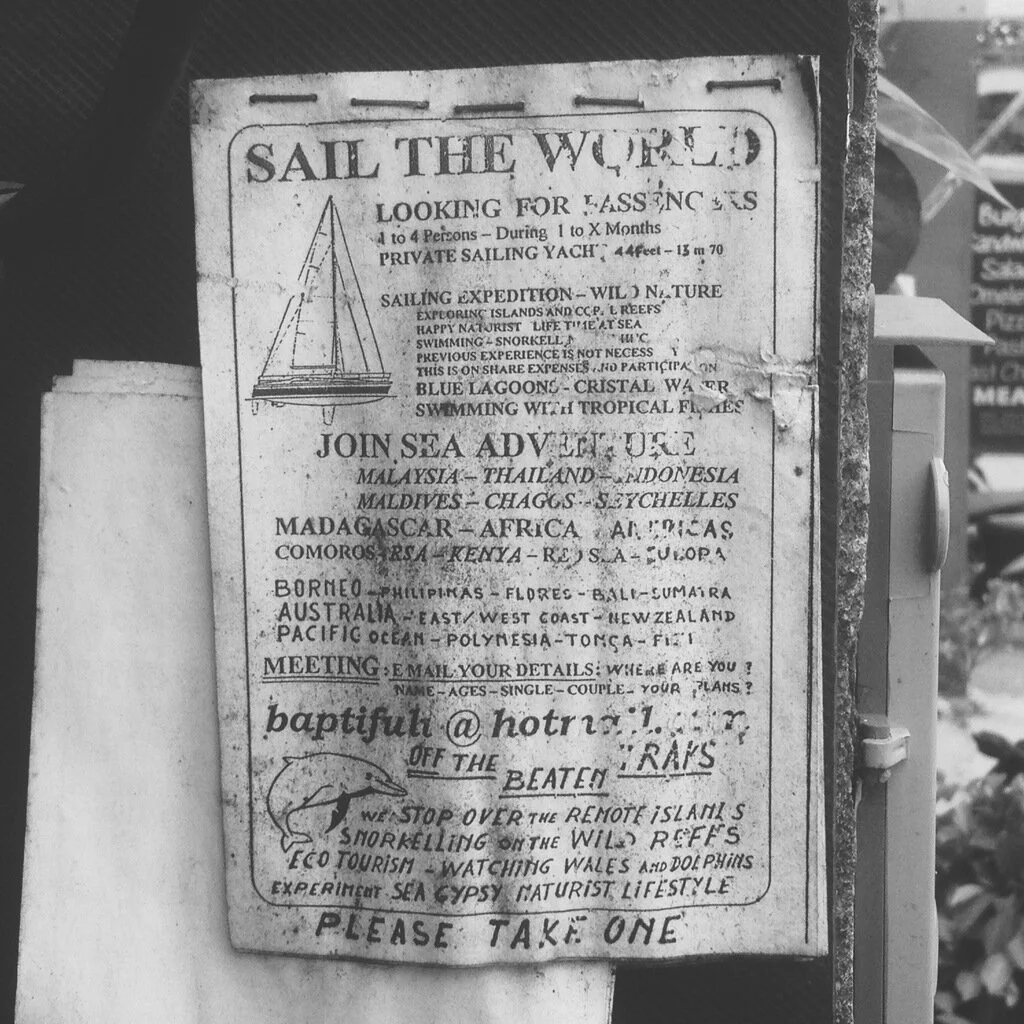 SAIL THE WORLD
LOOKING FOR PASSENGERS
1 to 4 Persons – During 1 to X Months
PRIVATE SAILING YACHT 44Feet – 13 m 70
SAILING EXPEDITION – WILD NATURE
EXPLORING ISLANDS AND CORAL REEFS
HAPPY NATURIST LIFE TIME AT SEA
SWIMMING – SNORKELL
PREVIOUS EXPERIENCE IS NOT NECESS Y
THIS IS ON SHARE EXPENSES AND PARTICIPATION
BLUE LAGOONS – CRISTAL WATER
SWIMMING WITH TROPICAL FISHES
JOIN SEA ADVENTURE
MALAYSIA – THAILAND – INDONESIA
MALDIVES – CHAGOS – SEYCHELLES
MADAGASCAR – AFRICA AMERICAS
COMOROS – RSA – KENYA – RED SEA – EUROPA
BORNEO – PHILIPINAS – FLORES – BALI – SUMATRA
AUSTRALIA – EAST/WEST COAST – NEW ZEALAND
PACIFIC OCEAN – POLYNESIA – TONGA – FIJI
MEETING : E MAIL YOUR DETAILS : WHERE ARE YOU ?
NAME – AGES – SINGLE – COUPLE – YOUR PLANS ?
baptifuli @ hotmail.com
OFF THE BEATEN TRAKS
WE STOP OVER THE REMOTE ISLANDS
SNORKELLING ON THE WILD REFFS
ECO TOURISM – WATCHING WALES AND DOLPHINS
EXPERIMENT SEA GYPSY NATURIST LIFESTYLE
PLEASE TAKE ONE
Pizz
MEA